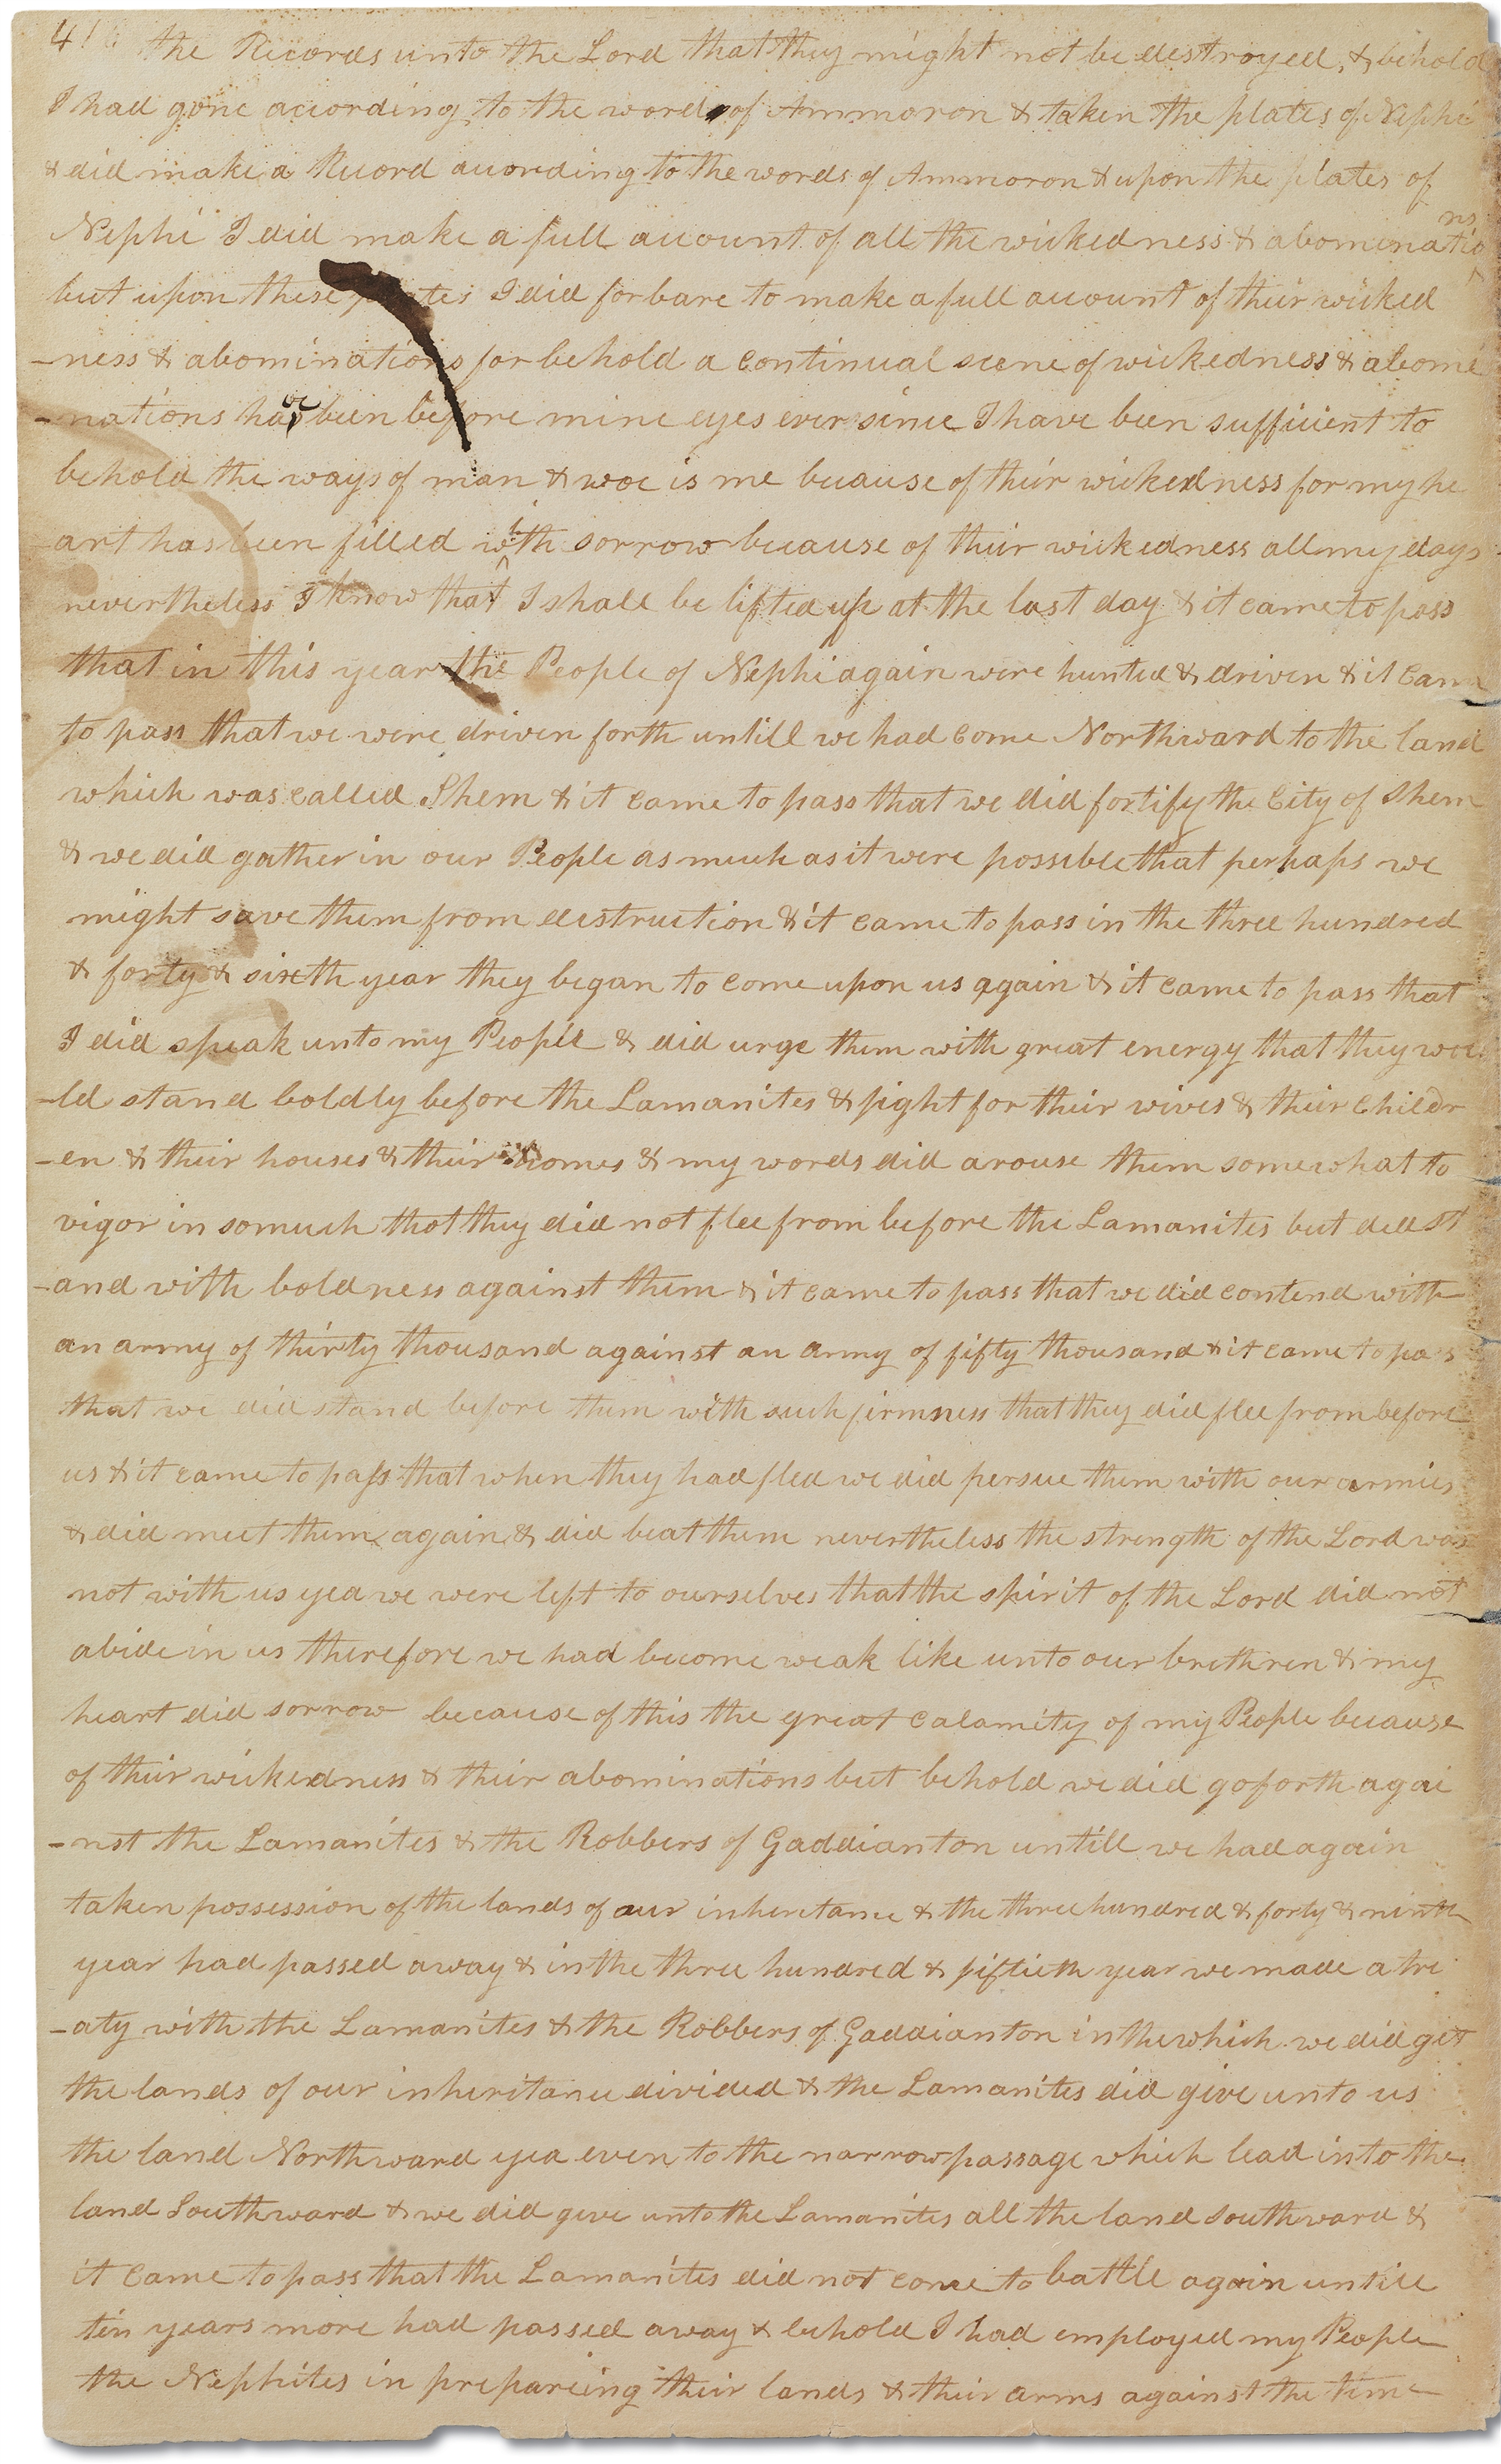 41 the Records unto the Lord that they might not be destroyed, & behold
I had gone according to the word of Ammoron & taken the plates of Nephi
& did make a Record according to the words of Ammoron & upon the plates of
Nephi I did make a full account of all the wickedness & abominatio
ns
but upon these plates I did forbare to make a full account of their wicked
-ness & abominations for behold a continual scene of wickedness & abomi
-nations have been before mine eyes ever since I have been sufficient to
behold the ways of man & woe is me because of their wickedness for my he
art has been filled with sorrow because of their wickedness all my days
nevertheless I know that I shall be lifted up at the last day & it came to pass
that in this year the People of Nephi again were hunted & driven & it came
to pass that we were driven forth untill we had come Northward to the land
which was called Shem & it came to pass that we did fortify the City of Shem
& we did gather in our People as much as it were possible that perhaps we
might save them from destruction & it came to pass in the three hundred
& forty & sixth year they began to come upon us again & it came to pass that
I did speak unto my People & did urge them with great energy that they wou
-ld stand boldly before the Lamanites & fight for their wives & their Childr
-en & their houses & their homes & my words did arouse them somewhat to
vigor in somuch that they did not flee from before the Lamanites but did st
-and with boldness against them & it came to pass that we did contend with
an army of thirty thousand against an army of fifty thousand & it came to pass
that we did stand before them with such firmness that they did flee from before
us & it came to pass that when they had fled we did persue them with our armies
& did meet them again & did beat them nevertheless the strength of the Lord was
not with us yea we were left to ourselves that the spirit of the Lord did not
abide in us therefore we had become weak like unto our brethren & my
heart did sorrow because of this the great calamity of my People because
of their wickedness & their abominations but behold we did go forth agai
-nst the Lamanites & the Robbers of Gaddianton untill we had again
taken possession of the lands of our inheritance & the three hundred & forty & ninth
year had passed away & in the three hundred & fiftieth year we made a tre
-aty with the Lamanites & the Robbers of Gaddianton in the which we did get
the lands of our inheritance divided & the Lamanites did give unto us
the land Northward yea even to the narrow passage which lead into the
land Southward & we did give unto the Lamanites all the land southward &
it came to pass that the Lamanites did not come to battle again untill
ten years more had passed away & behold I had employed my People
the Nephites in prepareing their lands & their arms against the time